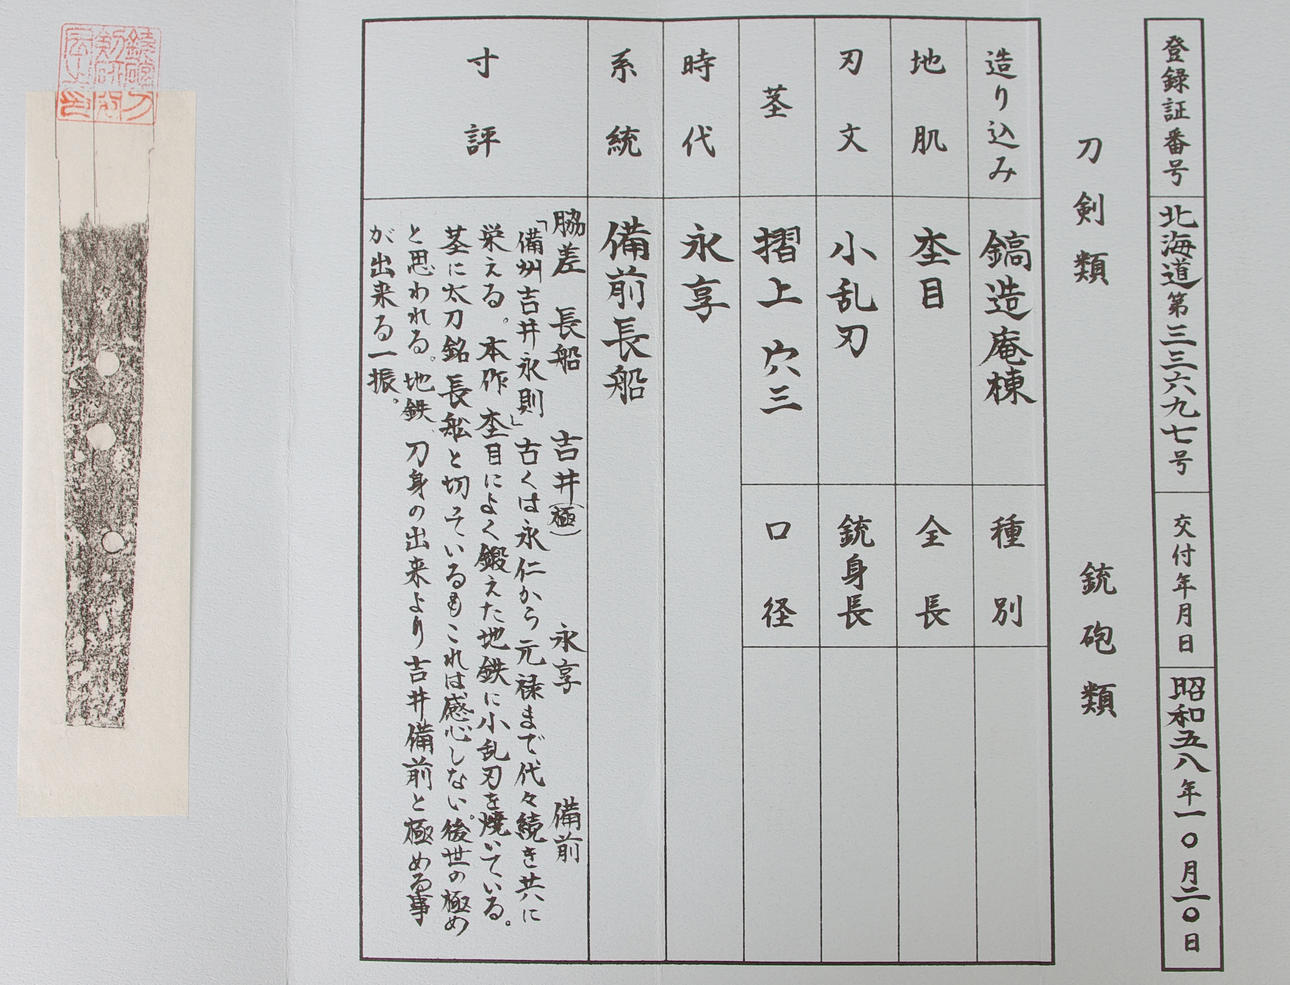 登録証番号 北海道第三三六九七号 交付年月日 昭和五八年一〇月二〇日
刀剣類 銃砲類
造り込み 鎬造庵棟 種別
地肌 杢目 全長
刃文 小乱刃 銃身長
茎 摺上 穴三 口径
時代 永享
系統 備前長船
寸評
脇差 長船 吉井(極) 永享 備前
「備州吉井永則」古くは永仁から元禄まで代々続き共に
栄える。本作 杢目によく鍛えた地鉄に小乱刃を焼いている。
茎に太刀銘 長舩と切っているもこれは感心しない。後世の極め
と思われる。地鉄、刀身の出来より吉井備前と極める事
が出来る一振。